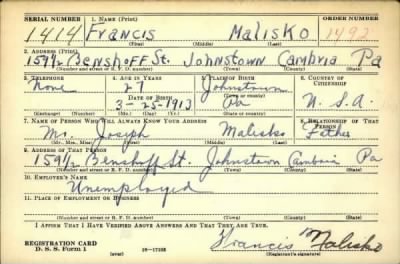 SERIAL NUMBER 1. NAME (Print) ORDER NUMBER
1414 Francis Malisko 1492
(First) (Middle) (Last)
2. ADDRESS (Print)
159½ Benshoff St. Johnstown Cambria Pa
(Number and street or R. F. D. number) (Town) (County) (State)
3. TELEPHONE 4. AGE IN YEARS 5. PLACE OF BIRTH 6. COUNTRY OF CITIZENSHIP
None 27 Johnstown
DATE OF BIRTH
3-25-1913 Pa U.S.A.
(Exchange) (Number) (Mo.) (Day) (Yr.) (State or country)
7. NAME OF PERSON WHO WILL ALWAYS KNOW YOUR ADDRESS 8. RELATIONSHIP OF THAT PERSON
Mr. Joseph Malisko Father
(Mr., Mrs., Miss) (First) (Middle) (Last)
9. ADDRESS OF THAT PERSON
159½ Benshoff St. Johnstown Cambria Pa
(Number and street or R. F. D. number) (Town) (County) (State)
10. EMPLOYER'S NAME
Unemployed
11. PLACE OF EMPLOYMENT OR BUSINESS
(Number and street or R. F. D. number) (Town) (County) (State)
I AFFIRM THAT I HAVE VERIFIED ABOVE ANSWERS AND THAT THEY ARE TRUE.
REGISTRATION CARD
D. S. S. Form 1 (over) Francis Malisko
(Registrant's signature)